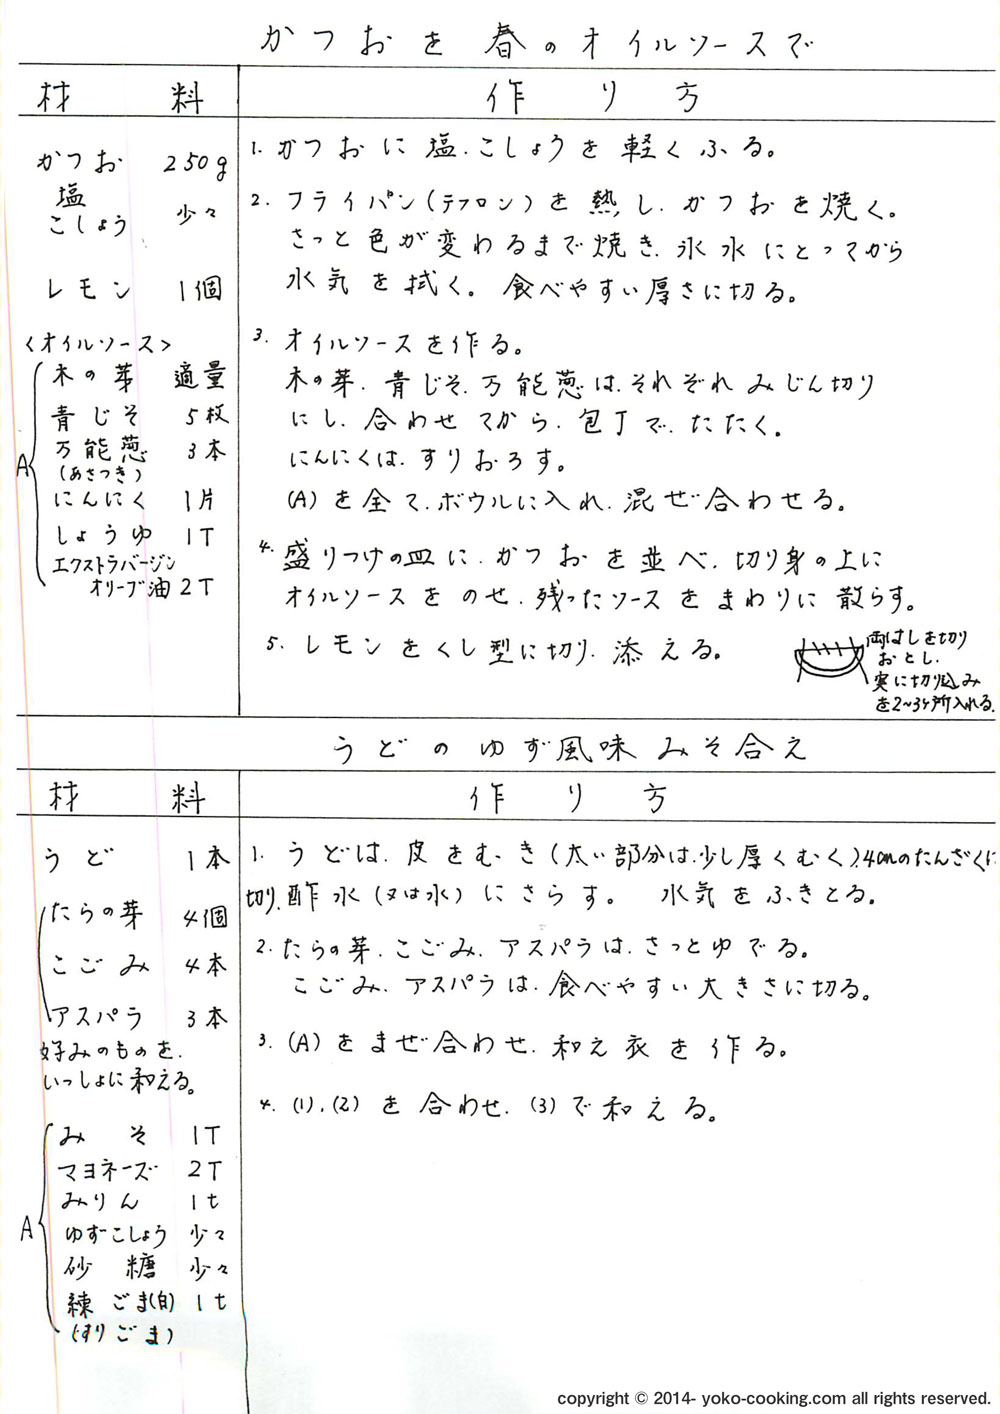 かつおを春のオイルソースで
材 料
作 り 方
かつお 250g
塩
こしょう 少々
レモン 1個
<オイルソース>
A
木の芽 適量
青じそ 5枚
万能葱 3本
(あさつき)
にんにく 1片
しょうゆ 1T
エクストラバージン
オリーブ油 2T
1. かつおに塩.こしょうを軽くふる。
2. フライパン(テフロン)を熱し.かつおを焼く。
さっと色が変わるまで焼き.氷水にとってから
水気を拭く。食べやすい厚さに切る。
3. オイルソースを作る。
木の芽.青じそ.万能葱は.それぞれみじん切り
にし.合わせてから.包丁で.たたく。
にんにくは.すりおろす。
(A)を全て.ボウルに入れ.混ぜ合わせる。
4. 盛りつけの皿に.かつおを並べ.切り身の上に
オイルソースをのせ.残ったソースをまわりに散らす。
5. レモンをくし型に切り.添える。
両はしを切り
おとし.
実に切り込み
を2~3ヶ所入れる.
うどのゆず風味みそ合え
材 料
作 り 方
うど 1本
たらの芽 4個
こごみ 4本
アスパラ 3本
好みのものを.
いっしょに和える。
A
みそ 1T
マヨネーズ 2T
みりん 1t
ゆずこしょう 少々
砂糖 少々
練ごま(白) 1t
(すりごま)
1. うどは.皮をむき(太い部分は.少し厚くむく).4cmのたんざくに
切り.酢水(又は水)にさらす。 水気をふきとる。
2. たらの芽.こごみ.アスパラは.さっとゆでる。
こごみ.アスパラは.食べやすい大きさに切る。
3. (A)をまぜ合わせ.和え衣を作る。
4. (1).(2)を合わせ.(3)で和える。
copyright © 2014- yoko-cooking.com all rights reserved.